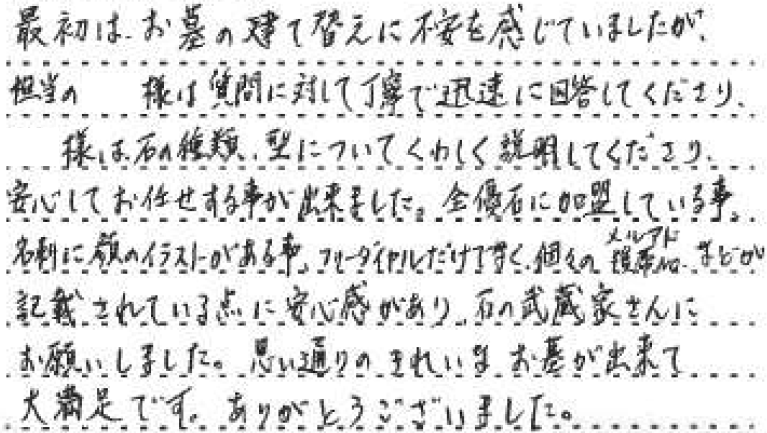 最初は、お墓の建て替えに不安を感じていましたが、
担当の　　様は質問に対して丁寧で迅速に回答してくださり、
様は石の種類、型についてくわしく説明してくださり、
安心してお任せする事が出来ました。全優石に加盟している事、
名刺に顔のイラストがある事、フリーダイヤルだけで苦く、個々の メルアド 携帯No. などが
記載されている点に安心感があり、石の武蔵家さんに
お願いしました。思い通りのきれいなお墓が出来て
大満足です。ありがとうございました。